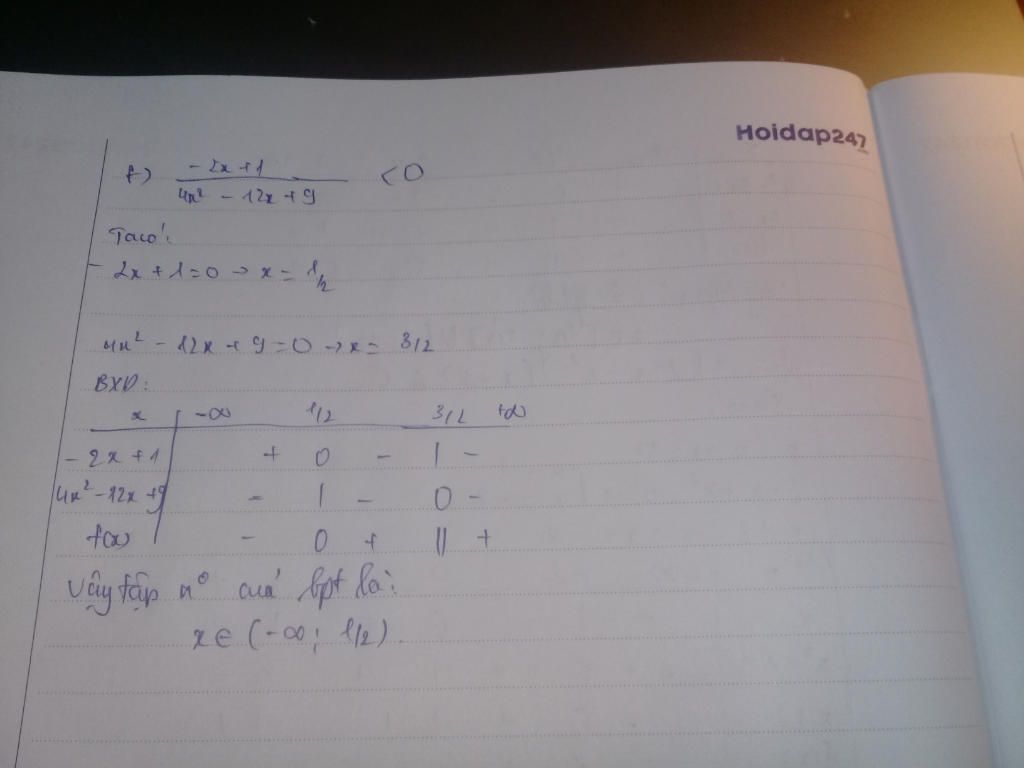 Hoidap247
f) \frac{-2x+1}{4x² - 12x + 9} < 0
Ta có:
- 2x + 1 = 0 → x = 1/2
4x² - 12x + 9 = 0 → x = 3/2
BXD:
x | -∞ 1/2 3/2 +∞
- 2x + 1 | + 0 - | -
4x² - 12x + 9 | - | - 0 -
f(x) | - 0 + || +
Vậy tập n⁰ của bpt là:
x ∈ (-∞; 1/2).